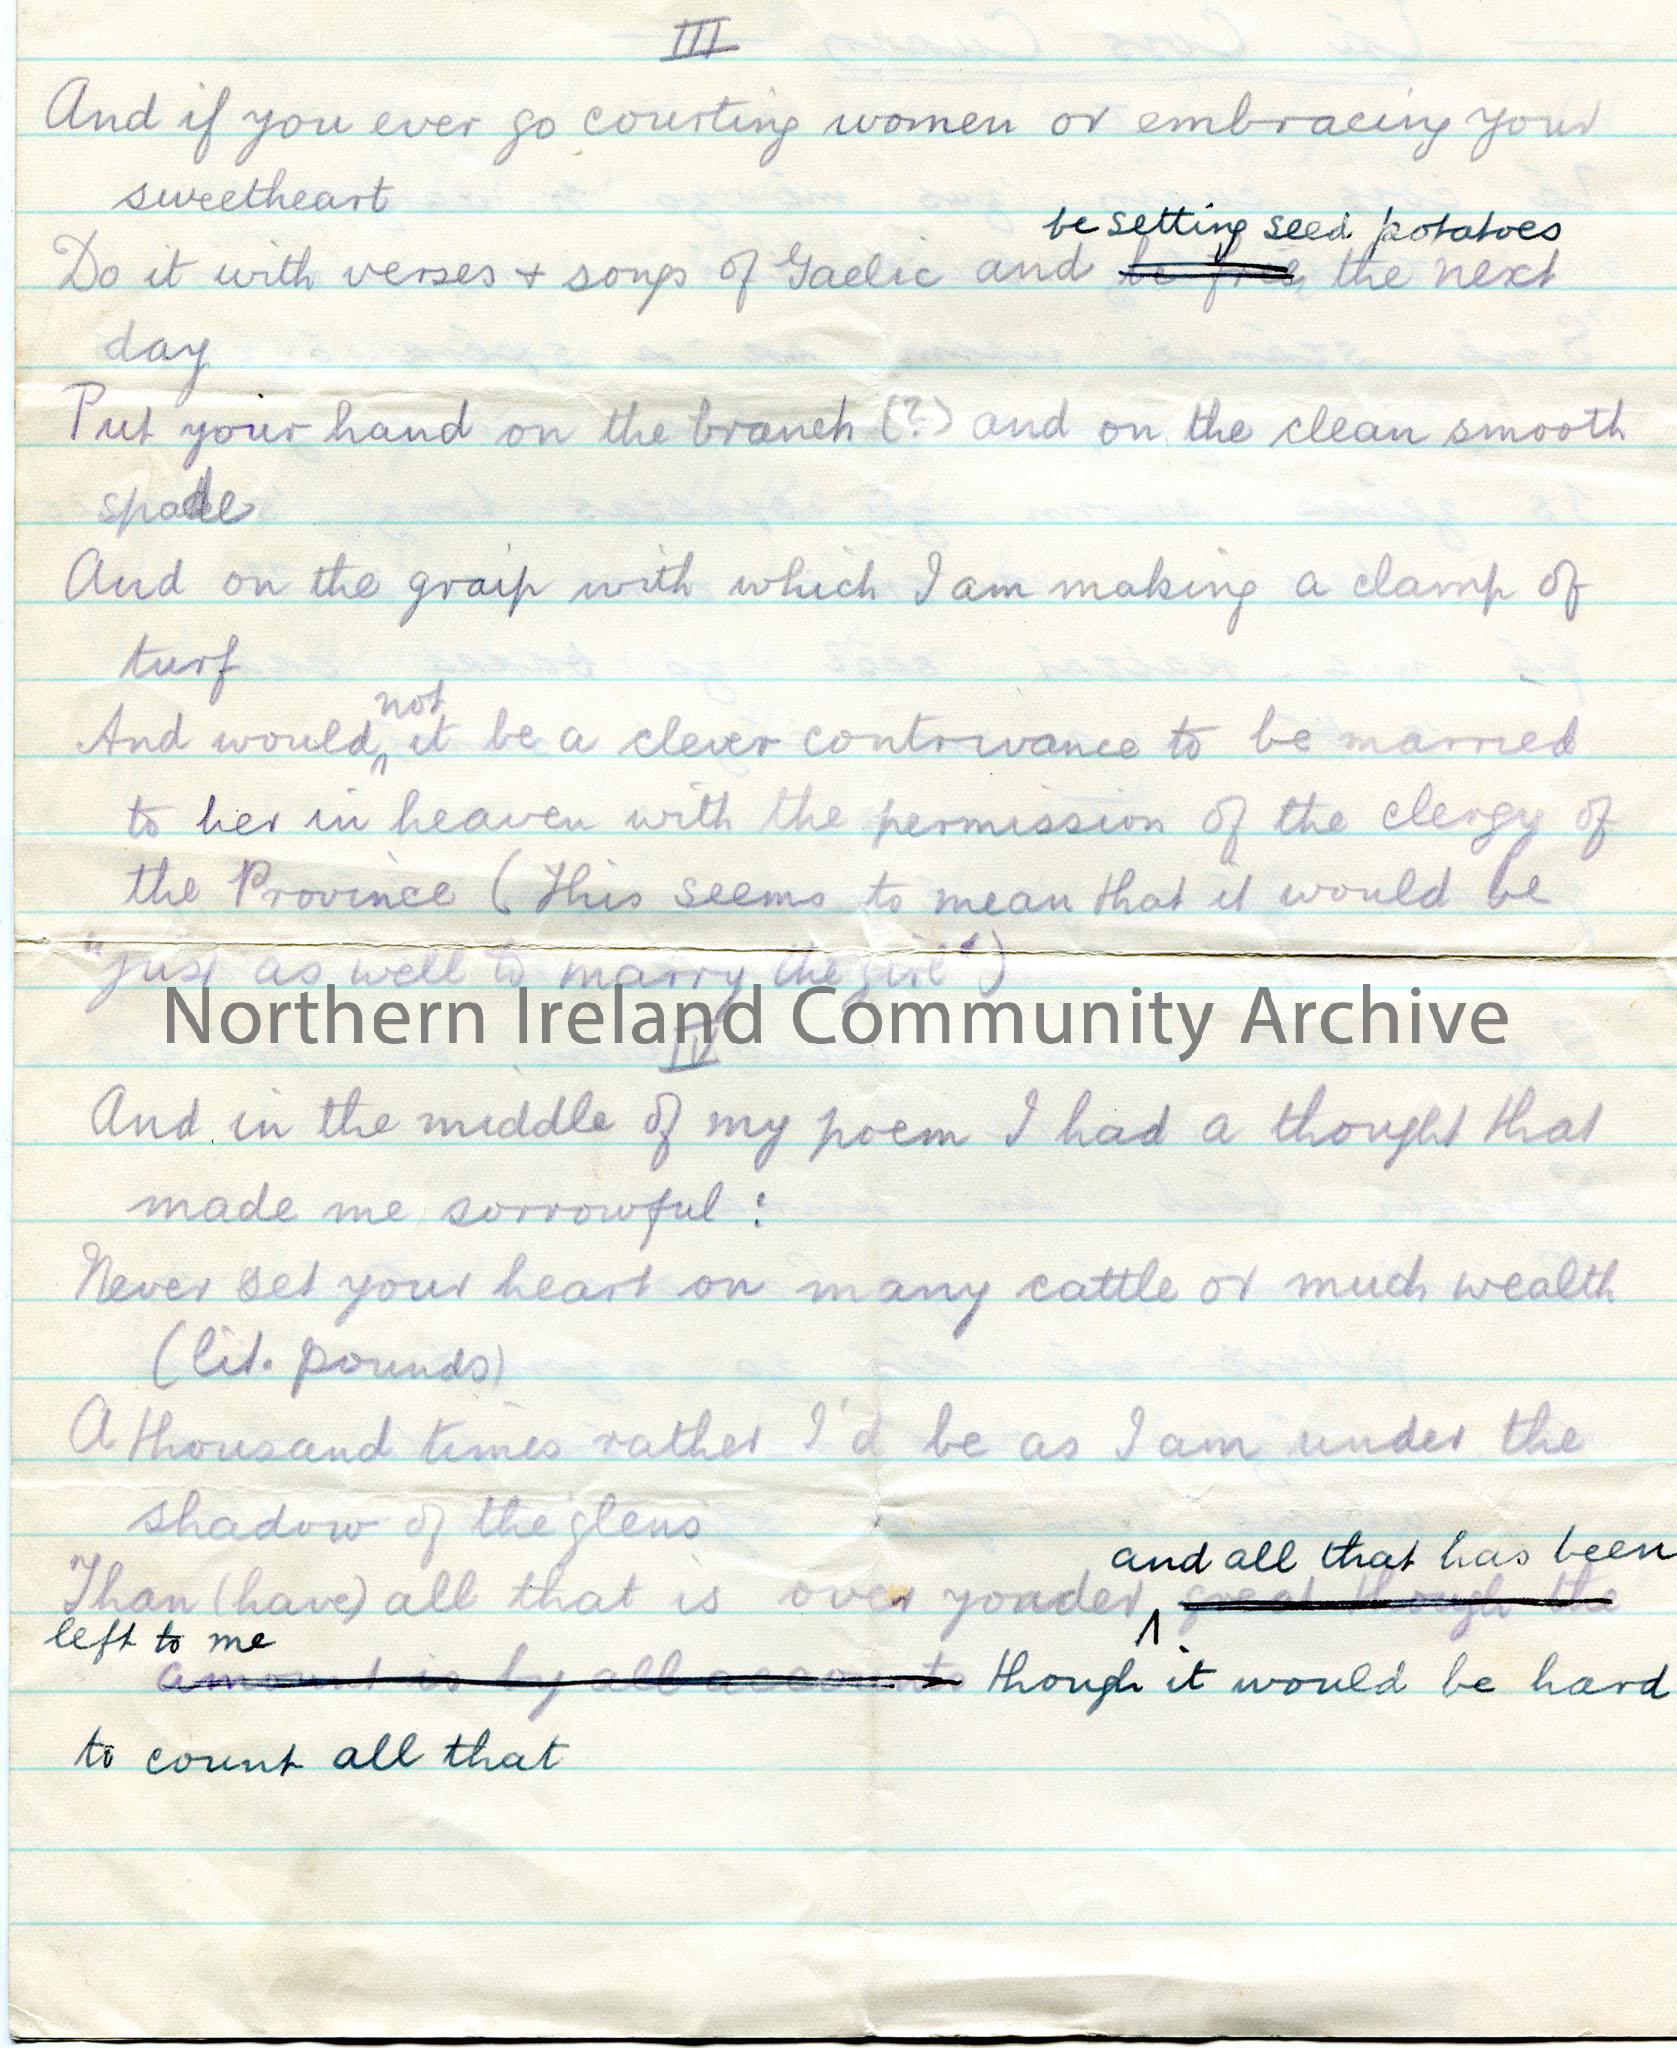 III
And if you ever go courting women or embracing your
sweetheart
be setting seed potatoes
Do it with verses + songs of Gaelic and be free, the next
day
Put your hand on the branch (?) and on the clean smooth
spade
And on the graip with which I am making a clamp of
turf
not
And would it be a clever contrivance to be married
to her in heaven with the permission of the clergy of
the Province (This seems to mean that it would be
"just as well to marry the girl")
Northern Ireland Community Archive
IV
And in the middle of my poem I had a thought that
made me sorrowful:
Never set your heart on many cattle or much wealth
(lit. pounds)
A thousand times rather I'd be as I am under the
shadow of the glens
and all that has been
Than (have) all that is over yonder, great though the
left to me
amount is by all accounts though it would be hard
to count all that